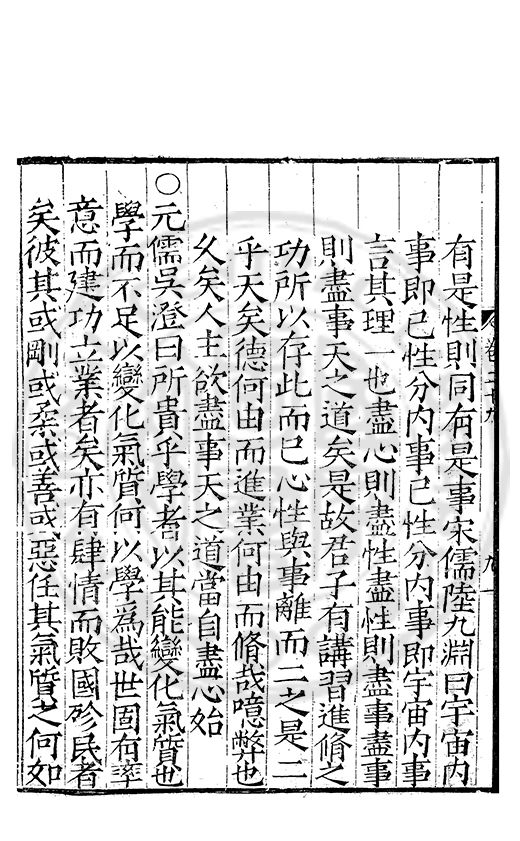 有是性則同有是事宋儒陸九淵曰宇宙內
事即己性分內事己性分內事即宇宙內事
言其理一也盡心則盡性盡性則盡事盡事
則盡事天之道矣是故君子有講習進脩之
功所以存此而已心性與事離而二之是二
乎天矣德何由而進業何由而脩哉噫弊也
久矣人主欲盡事天之道當自盡心始
〇元儒吳澄曰所貴乎學者以其能變化氣質也
學而不足以變化氣質何以學爲哉世固有率
意而建功立業者矣亦有肆情而敗國殄民者
矣彼其或剛或柔或善或惡任其氣質之何如